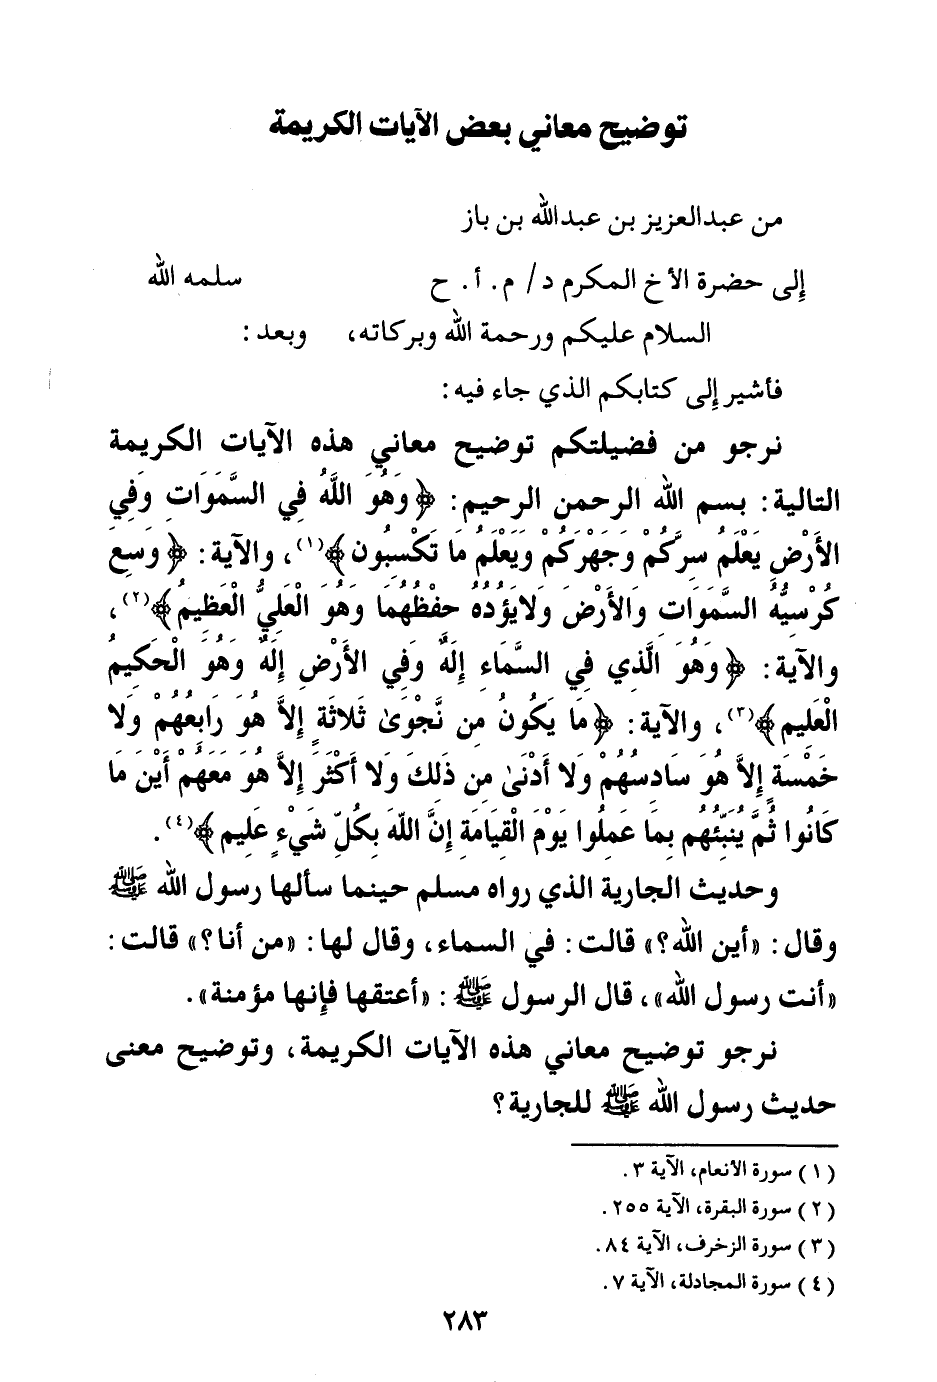 توضيح معاني بعض الآيات الكريمة
من عبدالعزيز بن عبدالله بن باز
إلى حضرة الأخ المكرم د/ م. أ. ح سلمه الله
السلام عليكم ورحمة الله وبركاته، وبعد:
فأشير إلى كتابكم الذي جاء فيه:
نرجو من فضيلتكم توضيح معاني هذه الآيات الكريمة
التالية: بسم الله الرحمن الرحيم: ﴿وَهُوَ اللَّهُ فِي السَّمَوَاتِ وَفِي
الأَرْضِ يَعْلَمُ سِرَّكُمْ وَجَهْرَكُمْ وَيَعْلَمُ مَا تَكْسِبُون﴾(١)، والآية: ﴿وَسِعَ
كُرْسِيُّهُ السَّمَوَاتِ وَالأَرْضَ وَلايَؤُدُهُ حِفْظُهُمَا وَهُوَ الْعَلِيُّ الْعَظِيمُ﴾(٢)،
والآية: ﴿وَهُوَ الَّذِي فِي السَّمَاءِ إِلَهٌ وَفِي الأَرْضِ إِلَهٌ وَهُوَ الْحَكِيمُ
الْعَلِيم﴾(٣)، والآية: ﴿مَا يَكُونُ مِن نَّجْوَىٰ ثَلاثَةٍ إِلاَّ هُوَ رَابِعُهُمْ وَلا
خَمْسَةٍ إِلاَّ هُوَ سَادِسُهُمْ وَلا أَدْنَىٰ مِن ذَلِكَ وَلا أَكْثَرَ إِلاَّ هُوَ مَعَهُمْ أَيْنَ مَا
كَانُوا ثُمَّ يُنَبِّئُهُم بِمَا عَمِلُوا يَوْمَ الْقِيَامَةِ إِنَّ اللَّهَ بِكُلِّ شَيْءٍ عَلِيم﴾(٤).
وحديث الجارية الذي رواه مسلم حينما سألها رسول الله ﷺ
وقال: «أين الله؟» قالت: في السماء، وقال لها: «من أنا؟» قالت:
«أنت رسول الله»، قال الرسول ﷺ: «أعتقها فإنها مؤمنة».
نرجو توضيح معاني هذه الآيات الكريمة، وتوضيح معنى
حديث رسول الله ﷺ للجارية؟
(١) سورة الأنعام، الآية ٣.
(٢) سورة البقرة، الآية ٢٥٥.
(٣) سورة الزخرف، الآية ٨٤.
(٤) سورة المجادلة، الآية ٧.
٢٨٣